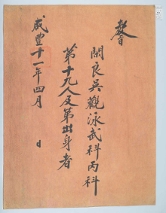 教旨
閑良吳觀泳武科丙科
第十九人及第出身者
咸豐十一年四月 日